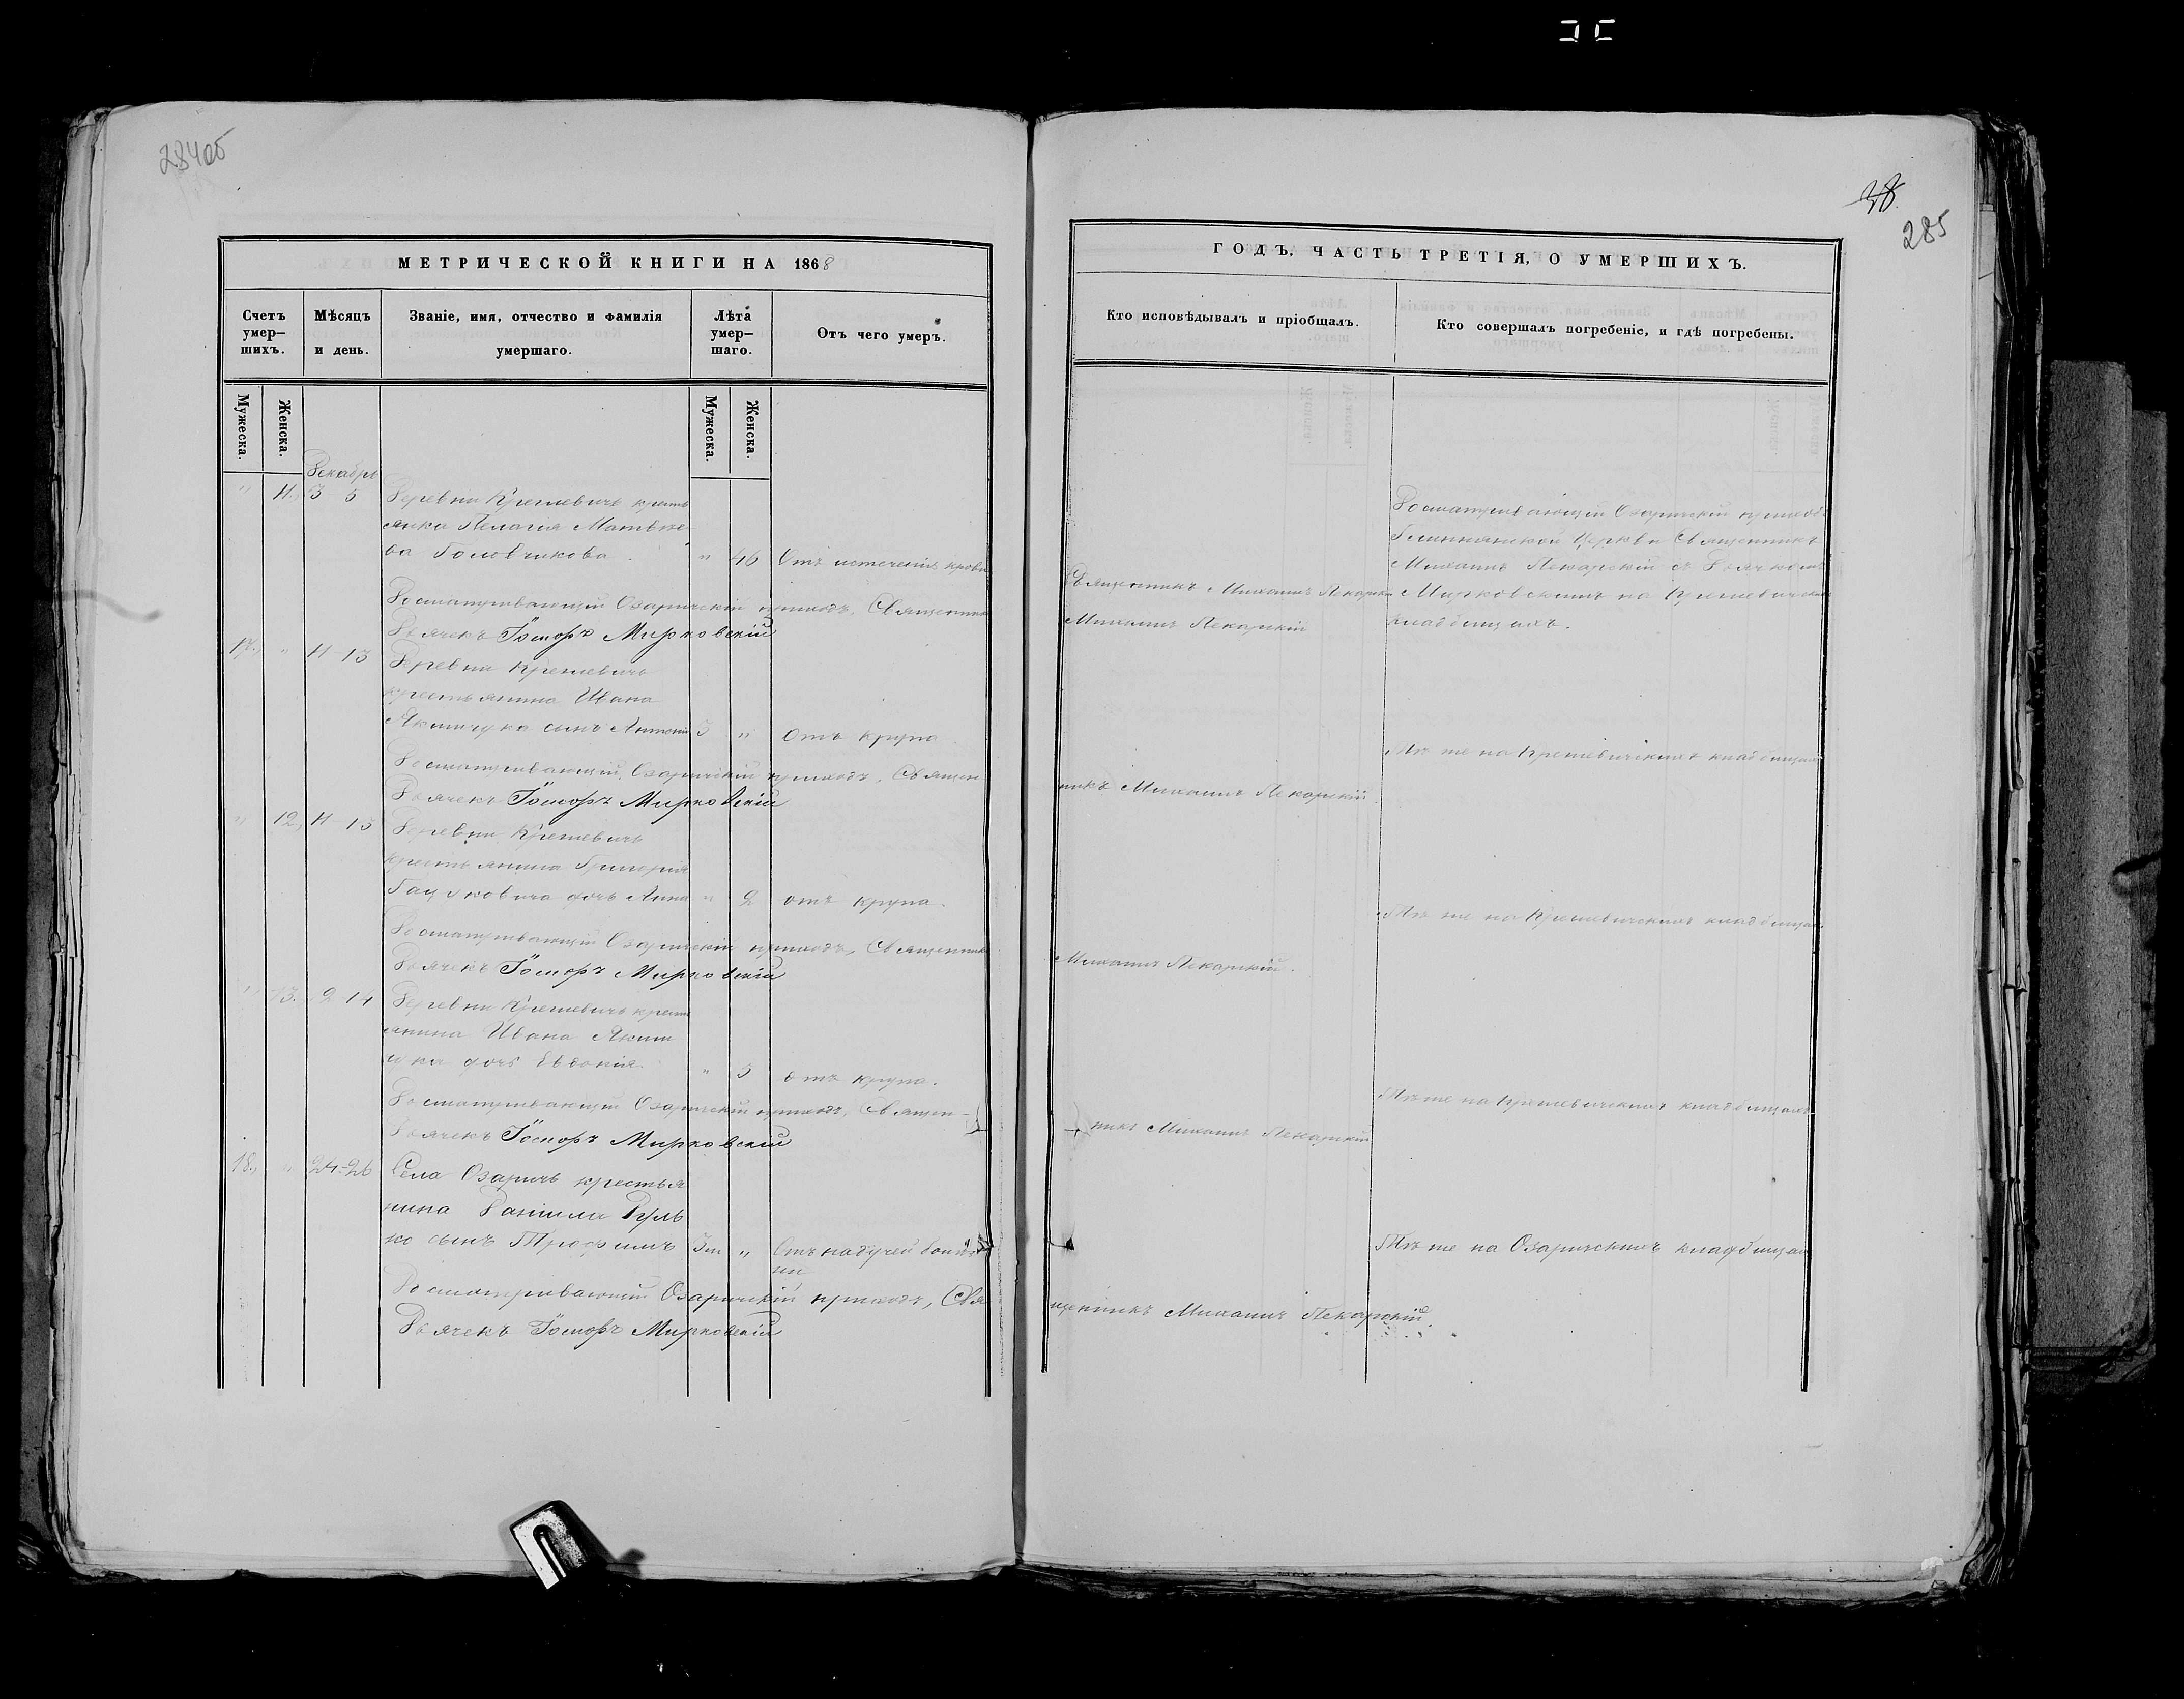 284об
38
285
МЕТРИЧЕСКОЙ КНИГИ НА 1868
Счетъ умер-шихъ.
Мѣсяцъ и день.
Званіе, имя, отчество и фамилія умершаго.
Лѣта умер-шаго.
Отъ чего умеръ.
Мужеска.
Женска.
Мужеска.
Женска.
Декабрь
" 11. 3 5 Деревни Крешевичъ кресть
янка Пелагія Матвѣе-
ва Головчикова. " 46 Отъ истеченія крови
Досматривающій Озаричскій приходъ, Священникъ
Дьячекъ Іосифъ Мирковскій
17. " 11 13 Деревни Крешевичъ
крестьянина Ивана
сынъ Антоній 3 " отъ крупа
Досматривающій Озаричскій приходъ, Священ
Дьячекъ Іосифъ Мирковскій
" 12. 11 13 Деревни Крешевичъ
крестьянина Григорія
Гацуковича дочь Анна " 2 отъ крупа.
Досматривающій Озаричскій приходъ, Священникъ
Дьячекъ Іосифъ Мирковскій
" 13. 12 14 Деревни Крешевичъ крест
янина Ивана
дочь Евдокія. " 5 отъ крупа.
Досматривающій Озаричскій приходъ, Священ-
Дьячекъ Іосифъ Мирковскій
18. " 24-26 Села Озаричъ крестья
нина Даніила Гуль
ко сынъ Трофимъ 3 " Отъ падучей
Досматривающій Озаричскій приходъ, Свя
Дьячекъ Іосифъ Мирковскій
ГОДЪ, ЧАСТЬ ТРЕТІЯ, О УМЕРШИХЪ.
Кто исповѣдывалъ и пріобщалъ.
Кто совершалъ погребеніе, и гдѣ погребены.
Досматривающій Озаричскій приходъ
церкви Священникъ
Михаилъ Пекарскій съ Дьячкомъ
Священникъ Михаилъ Пекарскій
Мирковскимъ на Крешевичскихъ
Михаилъ Пекарскій
кладбищахъ.
Тѣ же на Крешевичскихъ кладбищахъ
никъ Михаилъ Пекарскій.
Тѣ же на Крешевичскихъ кладбищахъ
Михаилъ Пекарскій.
Тѣ же на Крешевичскихъ кладбищахъ
никъ Михаилъ Пекарскій
Тѣ же на Озаричскихъ кладбищахъ
щенникъ Михаилъ Пекарскій.